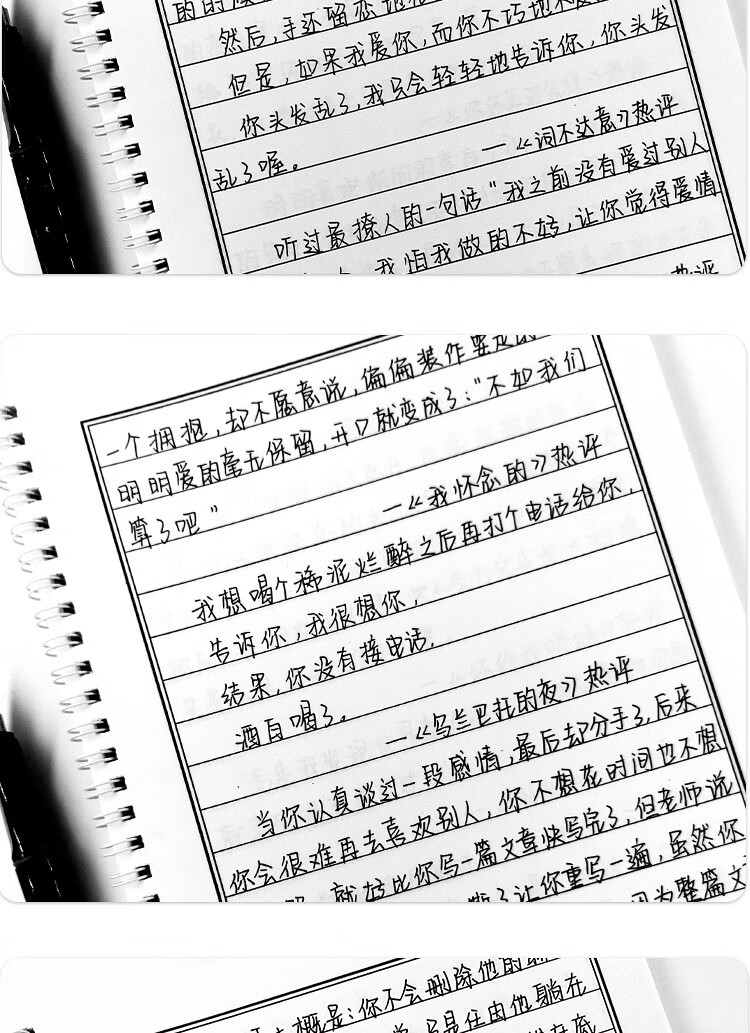 然后,手还留恋地
但是,如果我爱你,而你不巧地不
你头发乱了,我只会轻轻地告诉你,你头发
乱了喔。
—《词不达意》热评
听过最撩人的一句话“我之前没有爱过别人
我怕我做的不好,让你觉得爱情
热评
一个拥抱,却不愿意说,偏偏装作要走的
明明爱的毫无保留,开口就变成了:“不如我们
算了吧”
—《我怀念的》热评
我想喝个稀泥烂醉之后再打个电话给你,
告诉你,我很想你,
结果,你没有接电话.
酒白喝了。
—《乌兰巴托的夜》热评
当你认真谈过一段感情,最后却分手了,后来
你会很难再去喜欢别人,你不想花时间也不想
就好比你写一篇文章快写完了,但老师说
了让你重写一遍,虽然你
因为整篇文
概是:你不会删除他的
由他躺在